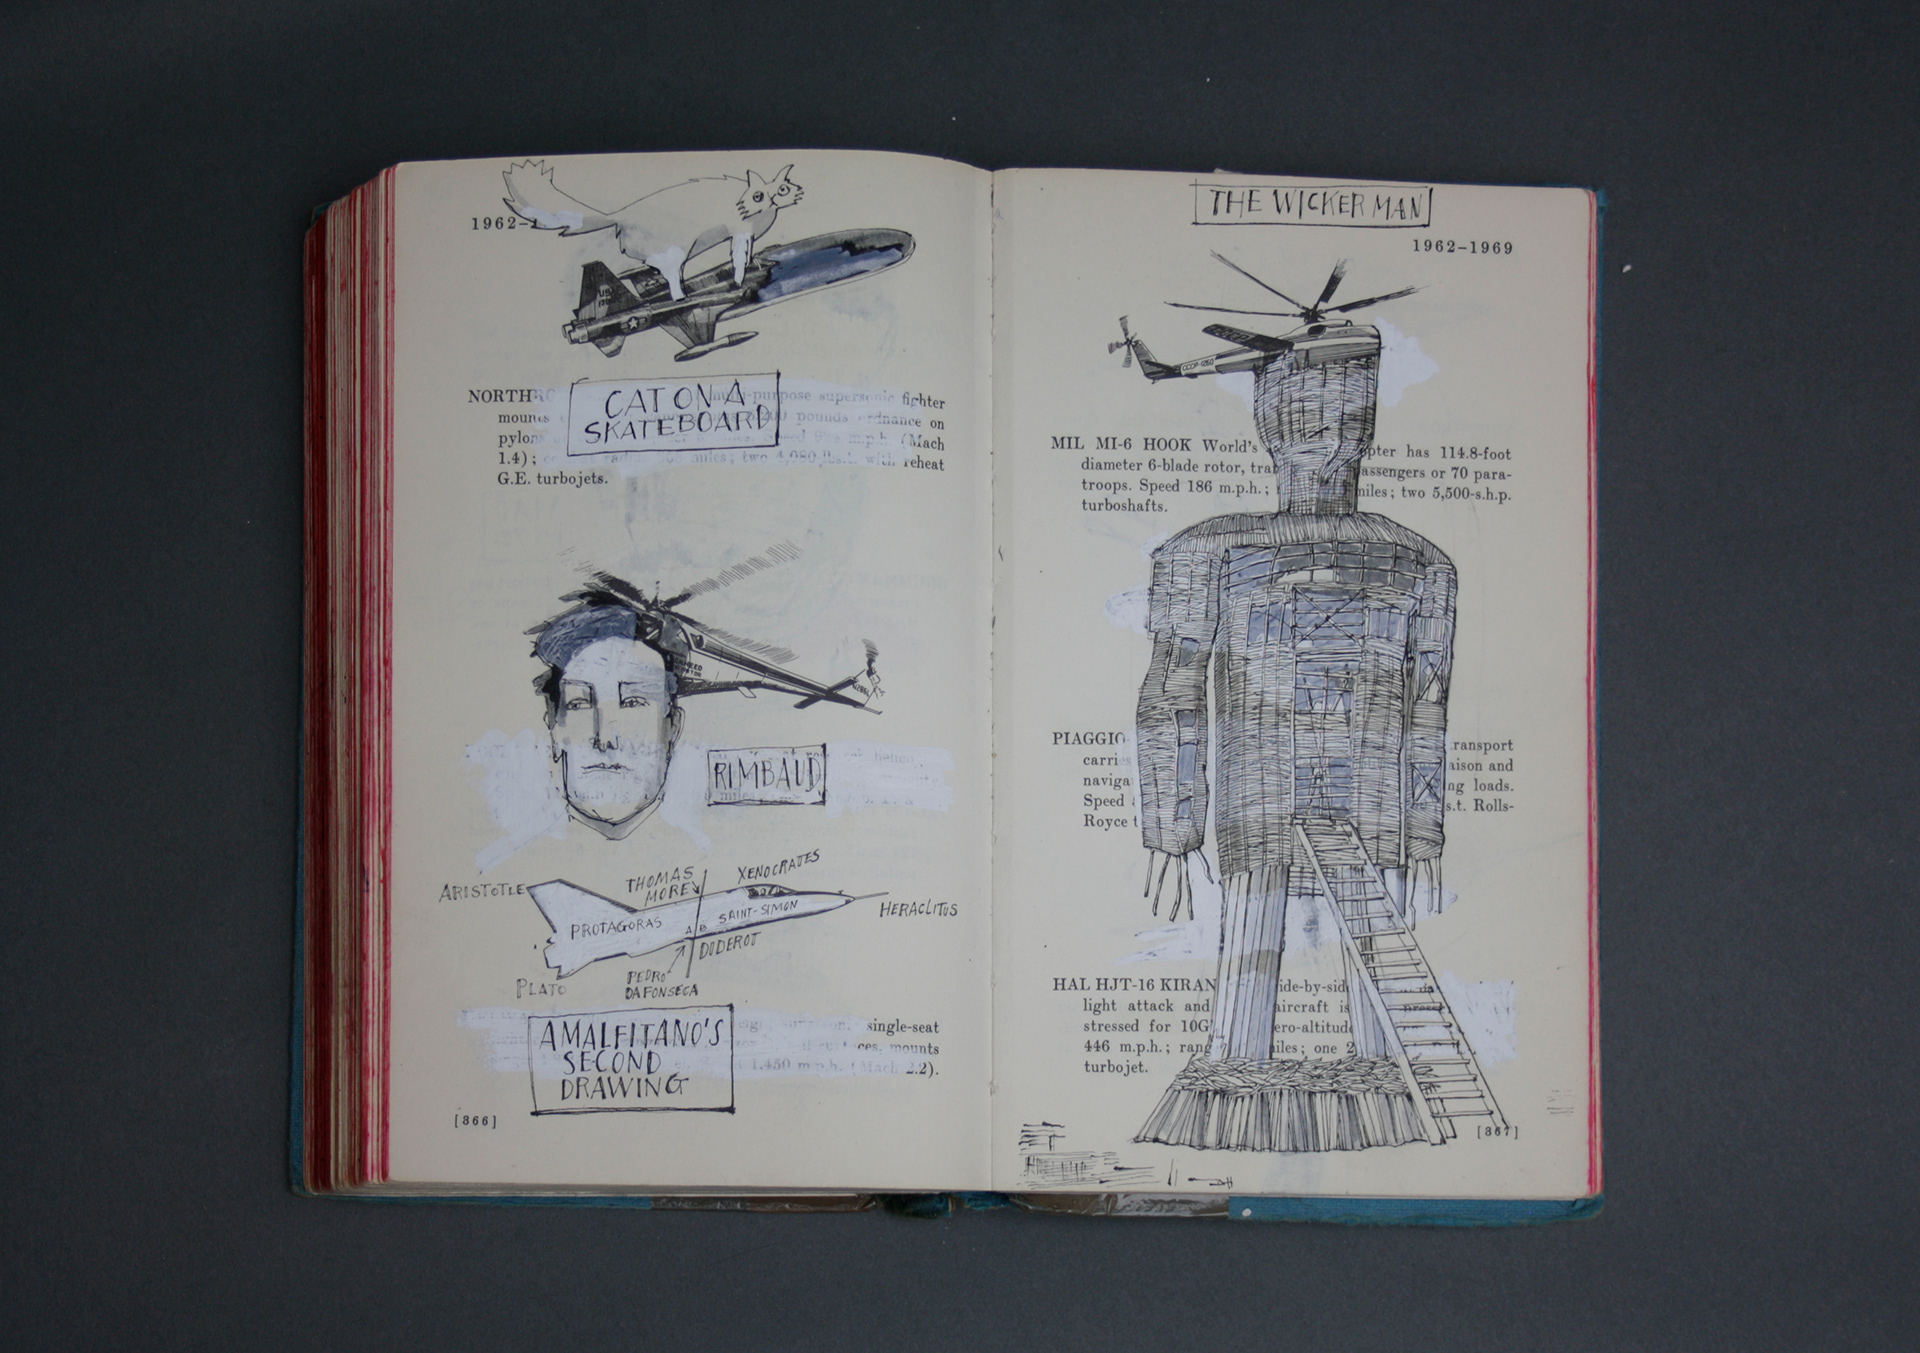 1962-1
CAT ON A
SKATEBOARD
NORTHRO multi-purpose supersonic fighter
mounts pounds ordnance on
pylons m.p.h. (Mach
1.4); radius miles; two 4,080 lbs.t. with reheat
G.E. turbojets.
RIMBAUD
ARISTOTLE
THOMAS
MORE
XENOCRATES
PROTAGORAS
A B
SAINT-SIMON
HERACLITUS
DIDEROT
PLATO
PEDRO
DA FONSECA
AMALFITANO'S
SECOND
DRAWING
single-seat
surfaces, mounts
1,450 m.p.h. (Mach 2.2).
[366]
THE WICKER MAN
1962–1969
CCCP
MIL MI-6 HOOK World's opter has 114.8-foot
diameter 6-blade rotor, tran assengers or 70 para-
troops. Speed 186 m.p.h.; miles; two 5,500-s.h.p.
turboshafts.
PIAGGIO- ransport
carries aison and
naviga ng loads.
Speed s.t. Rolls-
Royce t
HAL HJT-16 KIRAN ide-by-side
light attack and aircraft is
stressed for 10G ero-altitude
446 m.p.h.; range miles; one 2
turbojet.
[367]